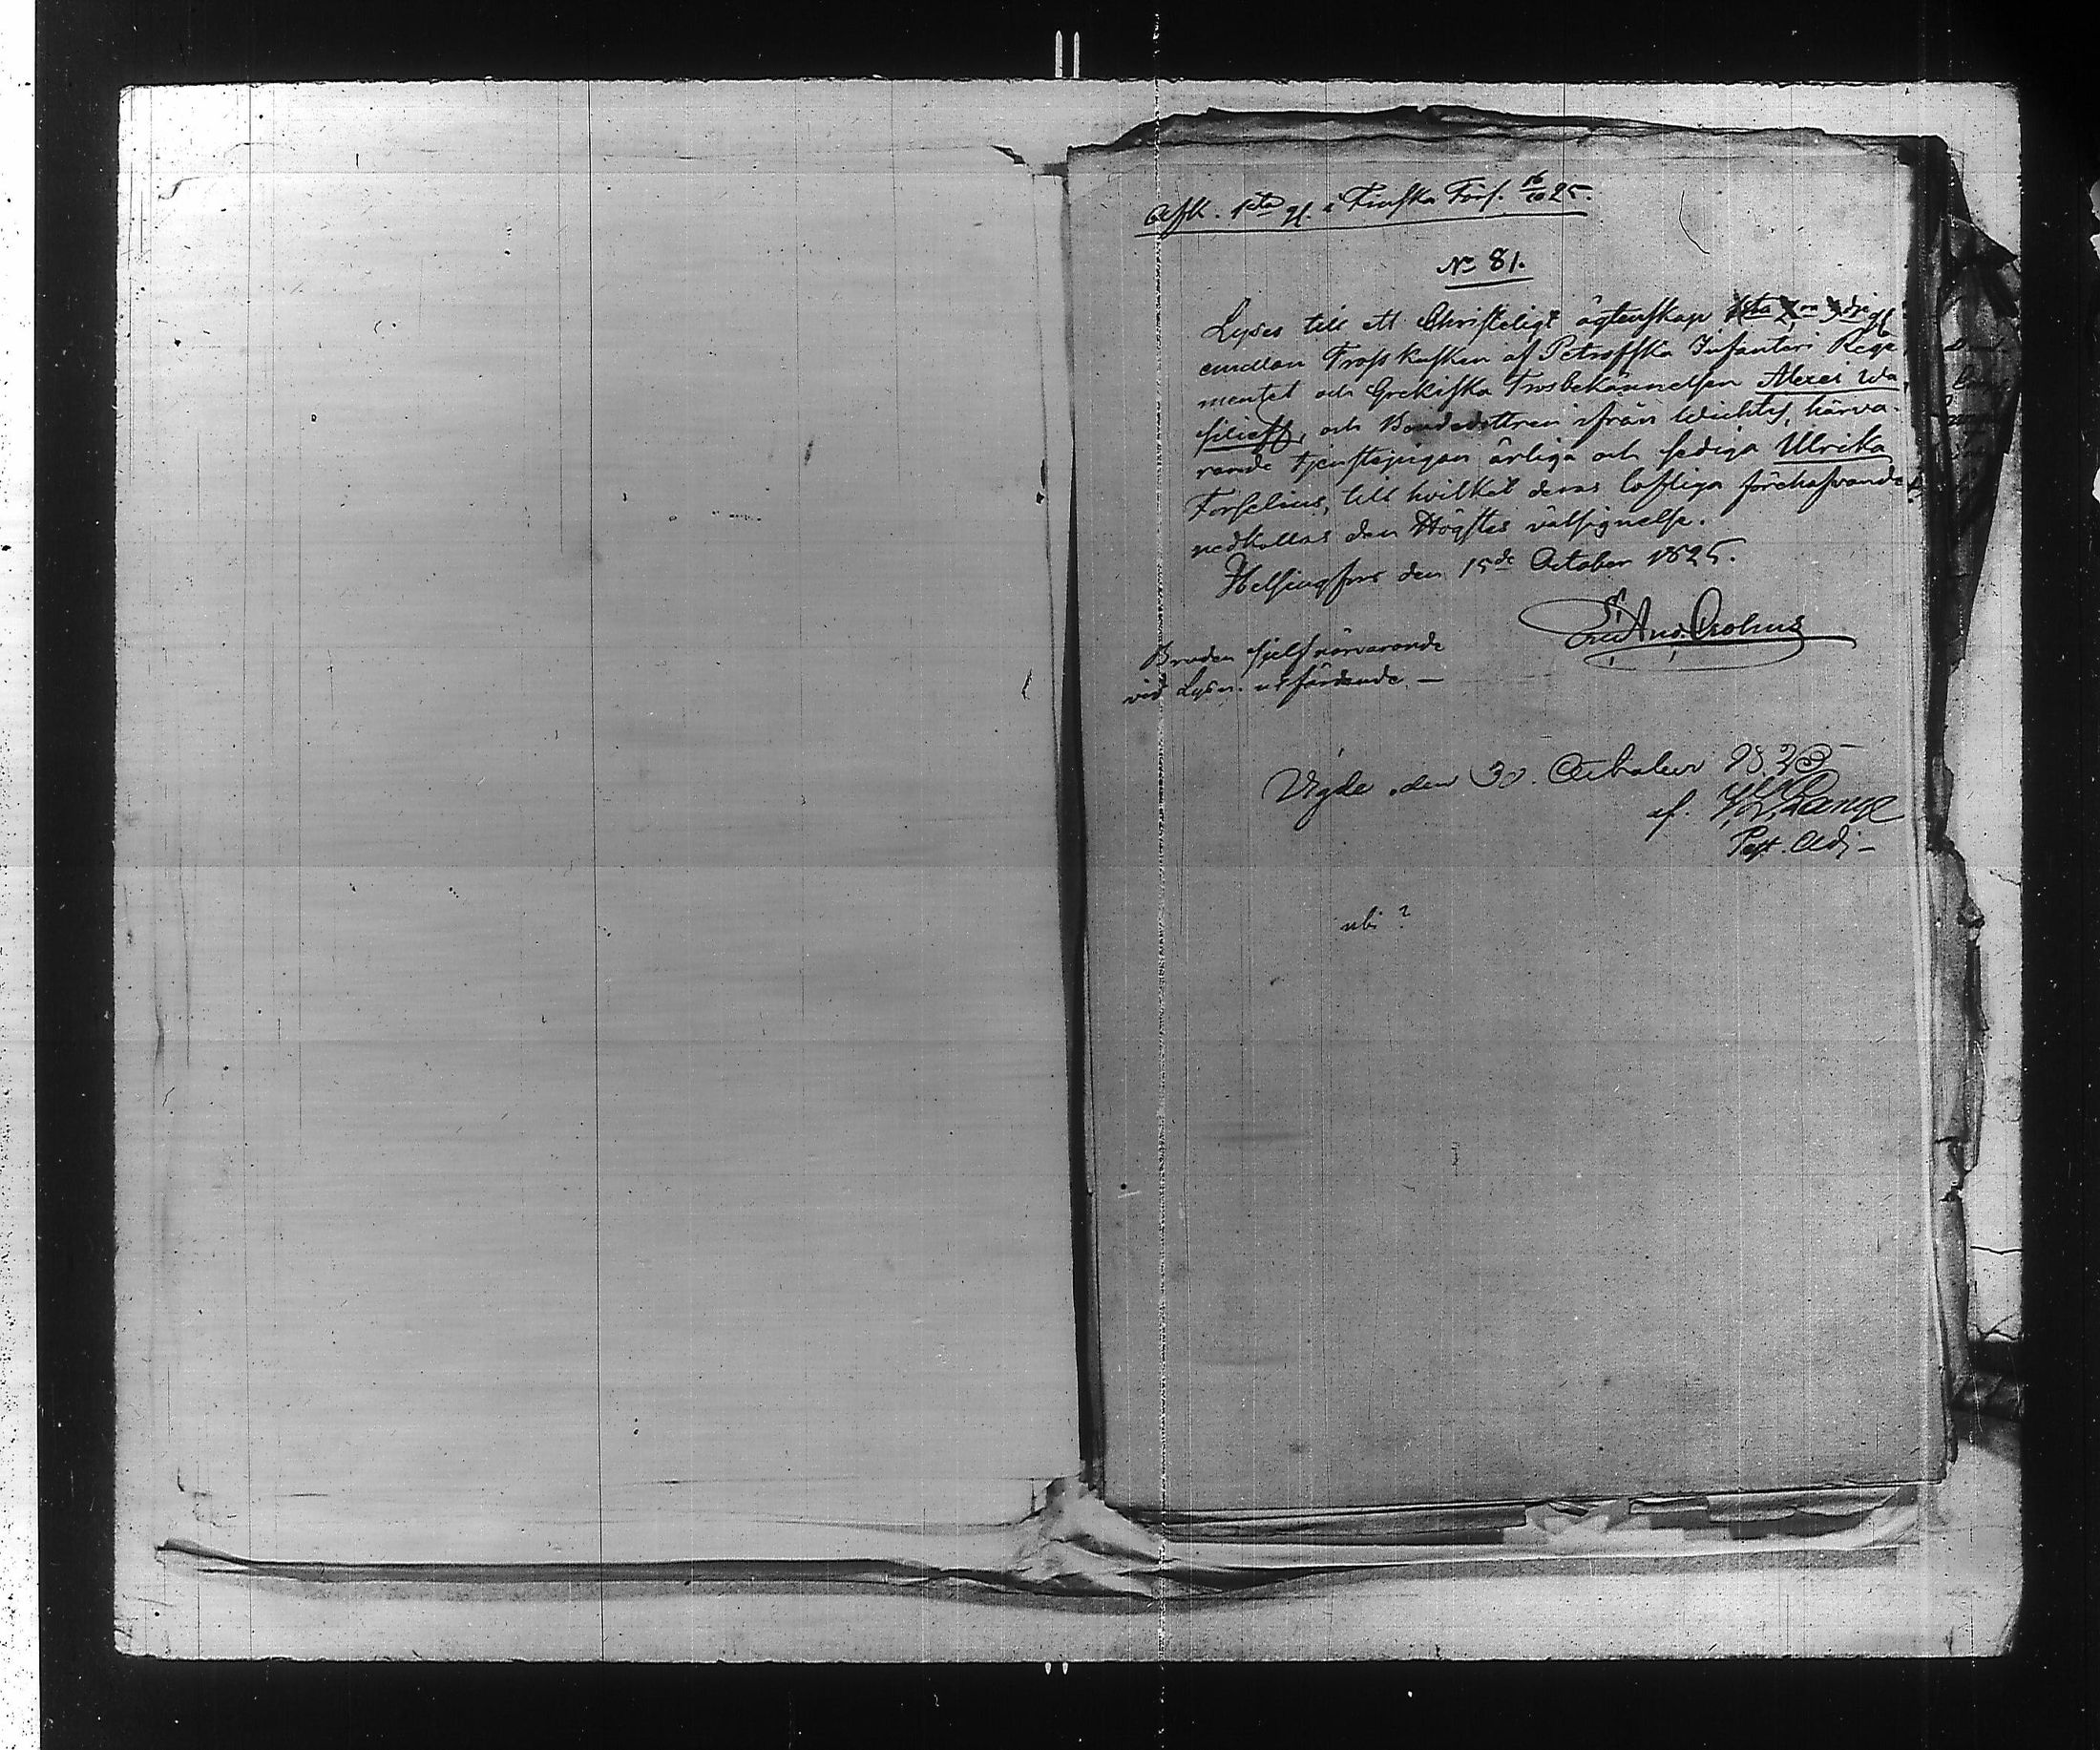 Afk. 1sta g. i Finska Förs. 16/10 25.
No 81.
Lyses till ett Christeligt ägtenskap 1sta 2ra 3dje g
emellan Trosskusken af Petroffska Infanteri Rege
mentet och Grekiska Trosbekännelsen Alexei Wa,
silieff, och Bondedottren ifrån Wichtis, härva-
rande tjenstepigan ärliga och sediga Ulrika
Forselius, till hvilket deras loflige förehafvande
nedkallas den Högstes välsignelse.
Helsingfors den 15de October 1825.
Bruden sjelf närvarande
vid Lysn. utfärdande —
Vigde den 30. October 1825
af
Past. Adj —
ubi ?